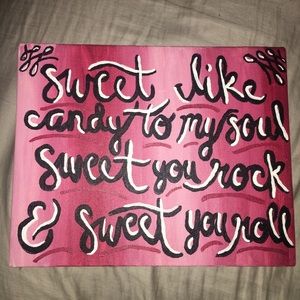 sweet like
candy to my soul
sweet you rock
& sweet you roll